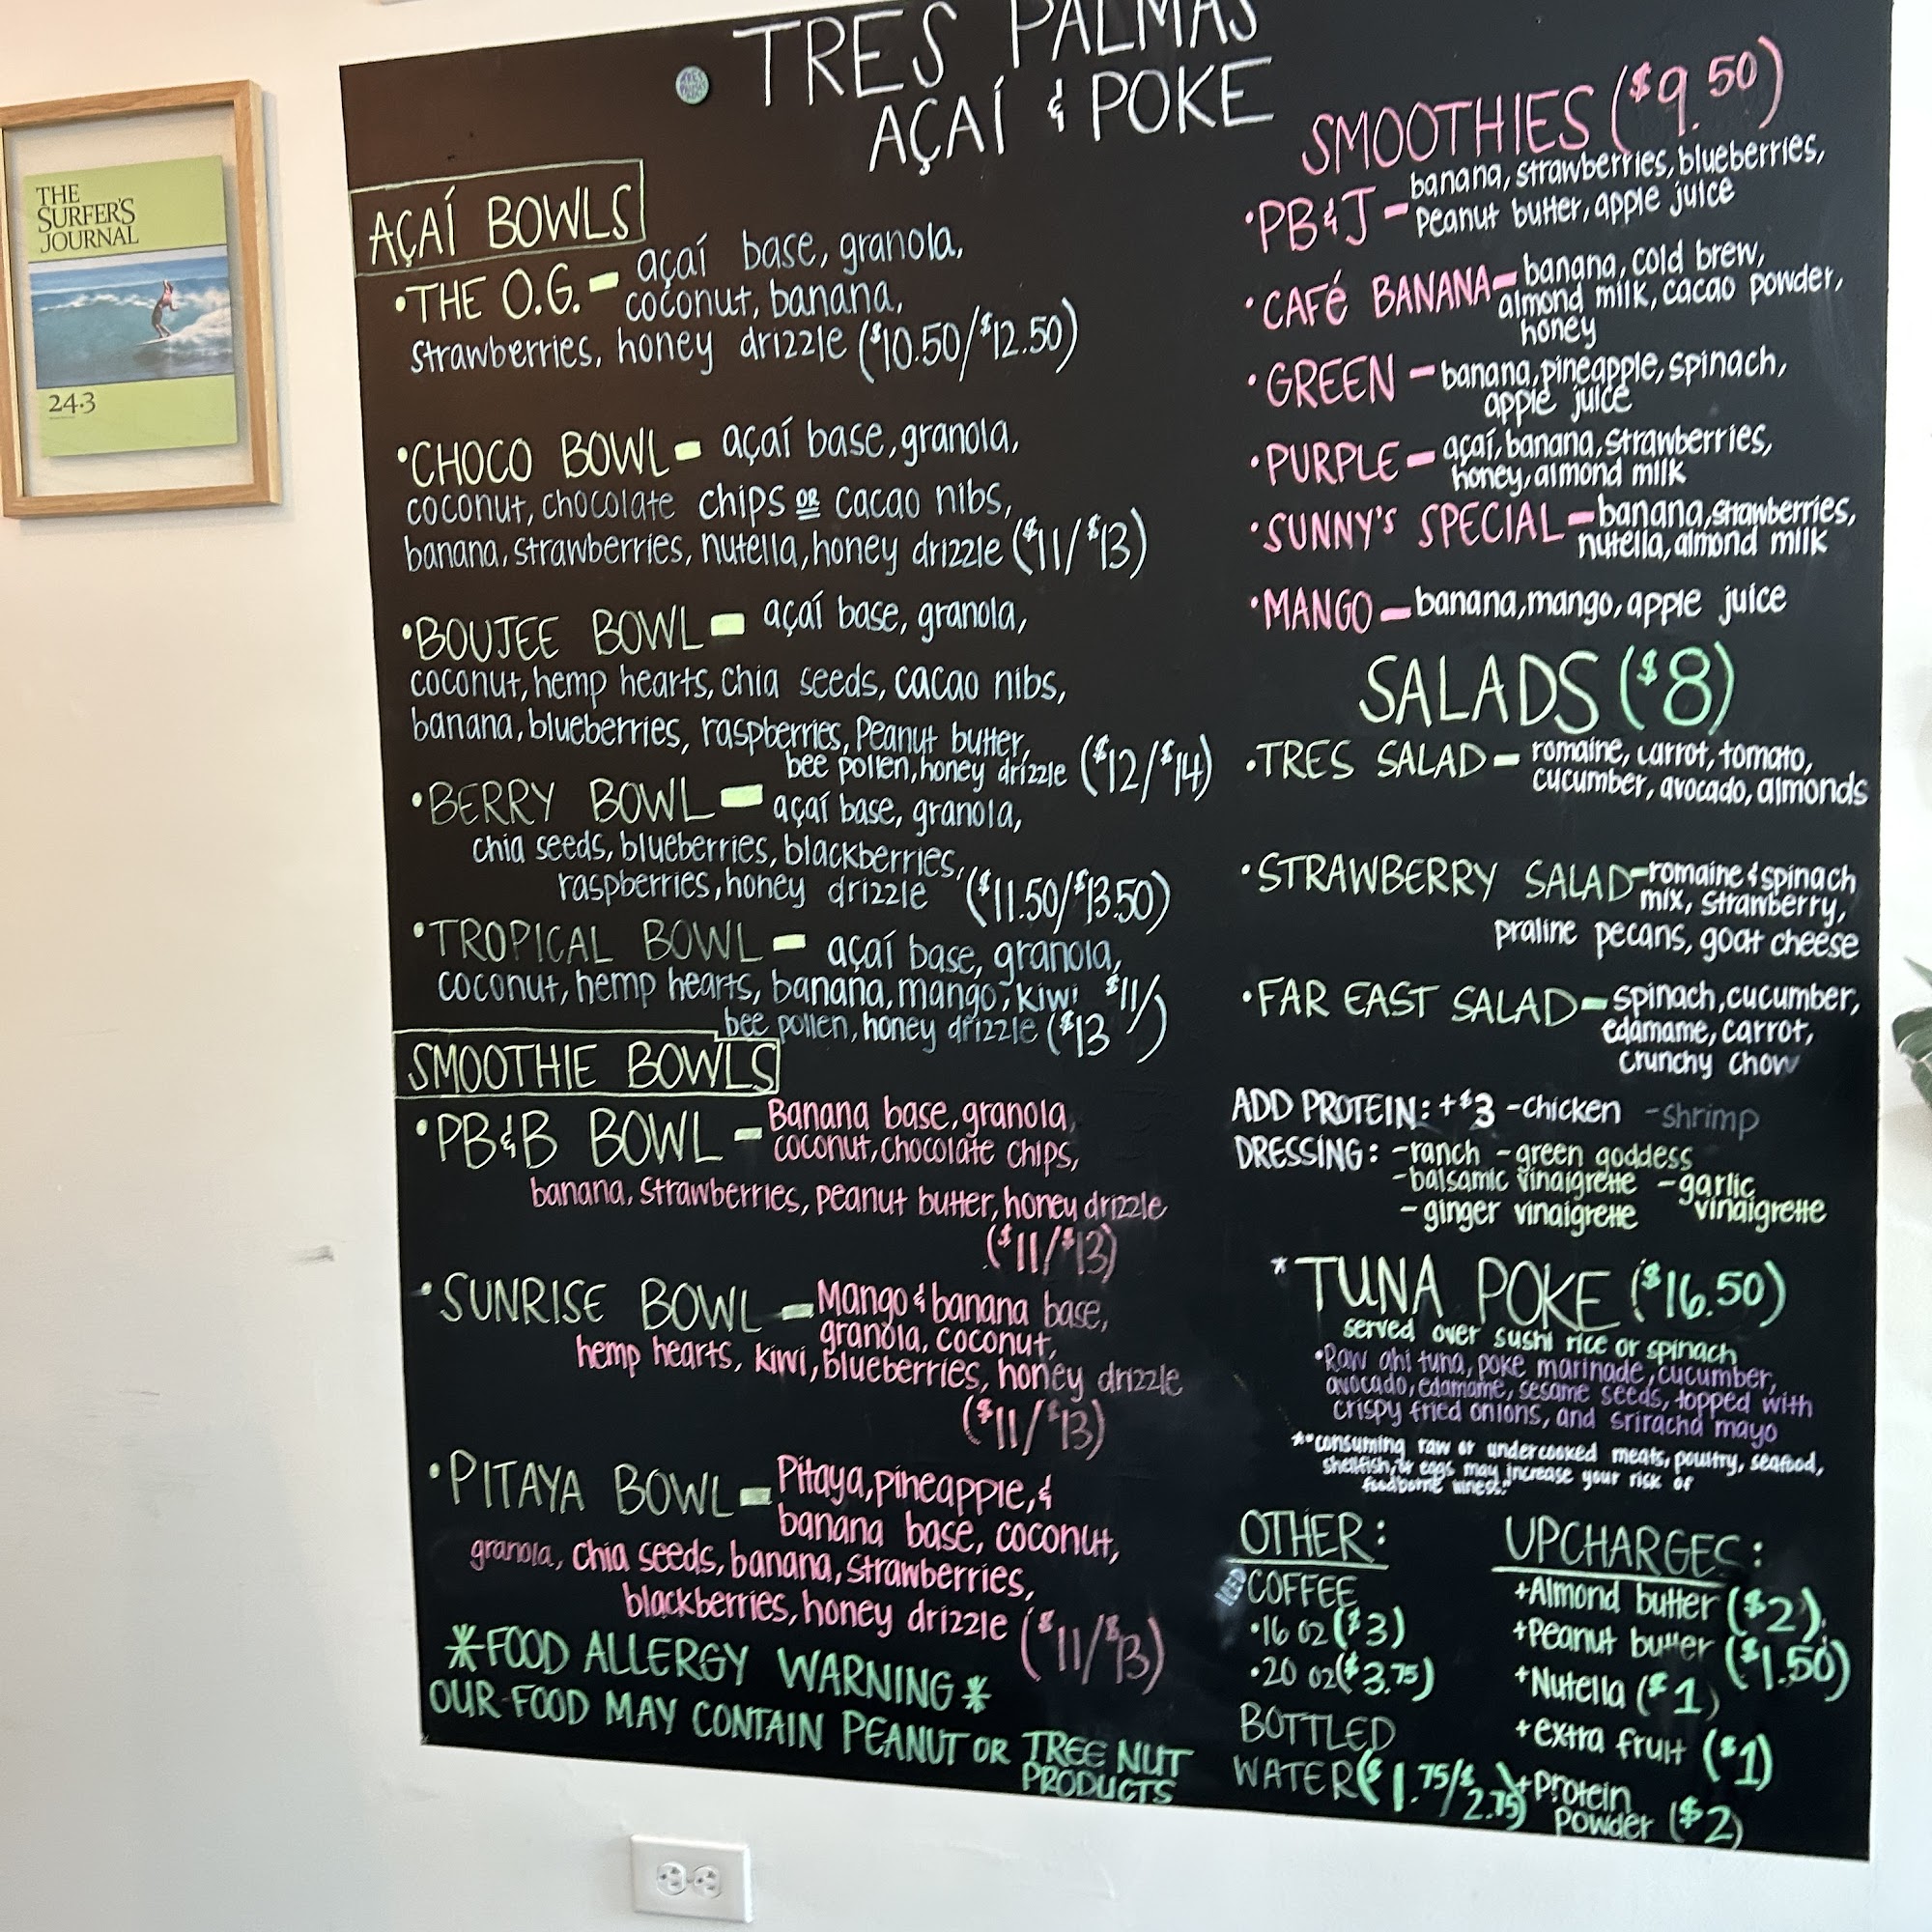 THE
SURFER'S
JOURNAL
24.3
TRES PALMAS
AÇAÍ & POKE
AÇAÍ BOWLS
•THE O.G. - açaí base, granola,
coconut, banana,
strawberries, honey drizzle ($10.50/$12.50)
•CHOCO BOWL - açaí base, granola,
coconut, chocolate chips OR cacao nibs,
banana, strawberries, nutella, honey drizzle ($11/$13)
•BOUJEE BOWL - açaí base, granola,
coconut, hemp hearts, chia seeds, cacao nibs,
banana, blueberries, raspberries, Peanut butter,
bee pollen, honey drizzle ($12/$14)
•BERRY BOWL - açaí base, granola,
chia seeds, blueberries, blackberries,
raspberries, honey drizzle ($11.50/$13.50)
•TROPICAL BOWL - açaí base, granola,
coconut, hemp hearts, banana, mango, kiwi,
bee pollen, honey drizzle ($11/$13)
SMOOTHIE BOWLS
•PB&B BOWL - Banana base, granola,
coconut, chocolate chips,
banana, strawberries, peanut butter, honey drizzle
($11/$13)
•SUNRISE BOWL - Mango & banana base,
granola, coconut,
hemp hearts, kiwi, blueberries, honey drizzle
($11/$13)
•PITAYA BOWL - Pitaya, pineapple, &
banana base, coconut,
granola, chia seeds, banana, strawberries,
blackberries, honey drizzle ($11/$13)
*FOOD ALLERGY WARNING*
OUR FOOD MAY CONTAIN PEANUT OR TREE NUT
PRODUCTS
SMOOTHIES ($9.50)
•PB&J - banana, strawberries, blueberries,
Peanut butter, apple juice
•CAFé BANANA - banana, cold brew,
almond milk, cacao powder,
honey
•GREEN - banana, pineapple, spinach,
apple juice
•PURPLE - açaí, banana, strawberries,
honey, almond milk
•SUNNY'S SPECIAL - banana, strawberries,
nutella, almond milk
•MANGO - banana, mango, apple juice
SALADS ($8)
•TRES SALAD - romaine, carrot, tomato,
cucumber, avocado, almonds
•STRAWBERRY SALAD - romaine & spinach
mix, strawberry,
praline pecans, goat cheese
•FAR EAST SALAD - spinach, cucumber,
edamame, carrot,
crunchy chow
ADD PROTEIN: +$3 -chicken -shrimp
DRESSING: -ranch -green goddess
-balsamic vinaigrette -garlic
-ginger vinaigrette vinaigrette
*TUNA POKE ($16.50)
served over sushi rice or spinach
•Raw ahi tuna, poke marinade, cucumber,
avocado, edamame, sesame seeds, topped with
crispy fried onions, and sriracha mayo
**consuming raw or undercooked meats, poultry, seafood,
shellfish, or eggs may increase your risk of
foodborne illness."
OTHER:
COFFEE
•16 oz ($3)
•20 oz ($3.75)
BOTTLED
WATER ($1.75/$2.75)
UPCHARGES:
+Almond butter ($2)
+Peanut butter ($1.50)
+Nutella ($1)
+extra fruit ($1)
+Protein
Powder ($2)